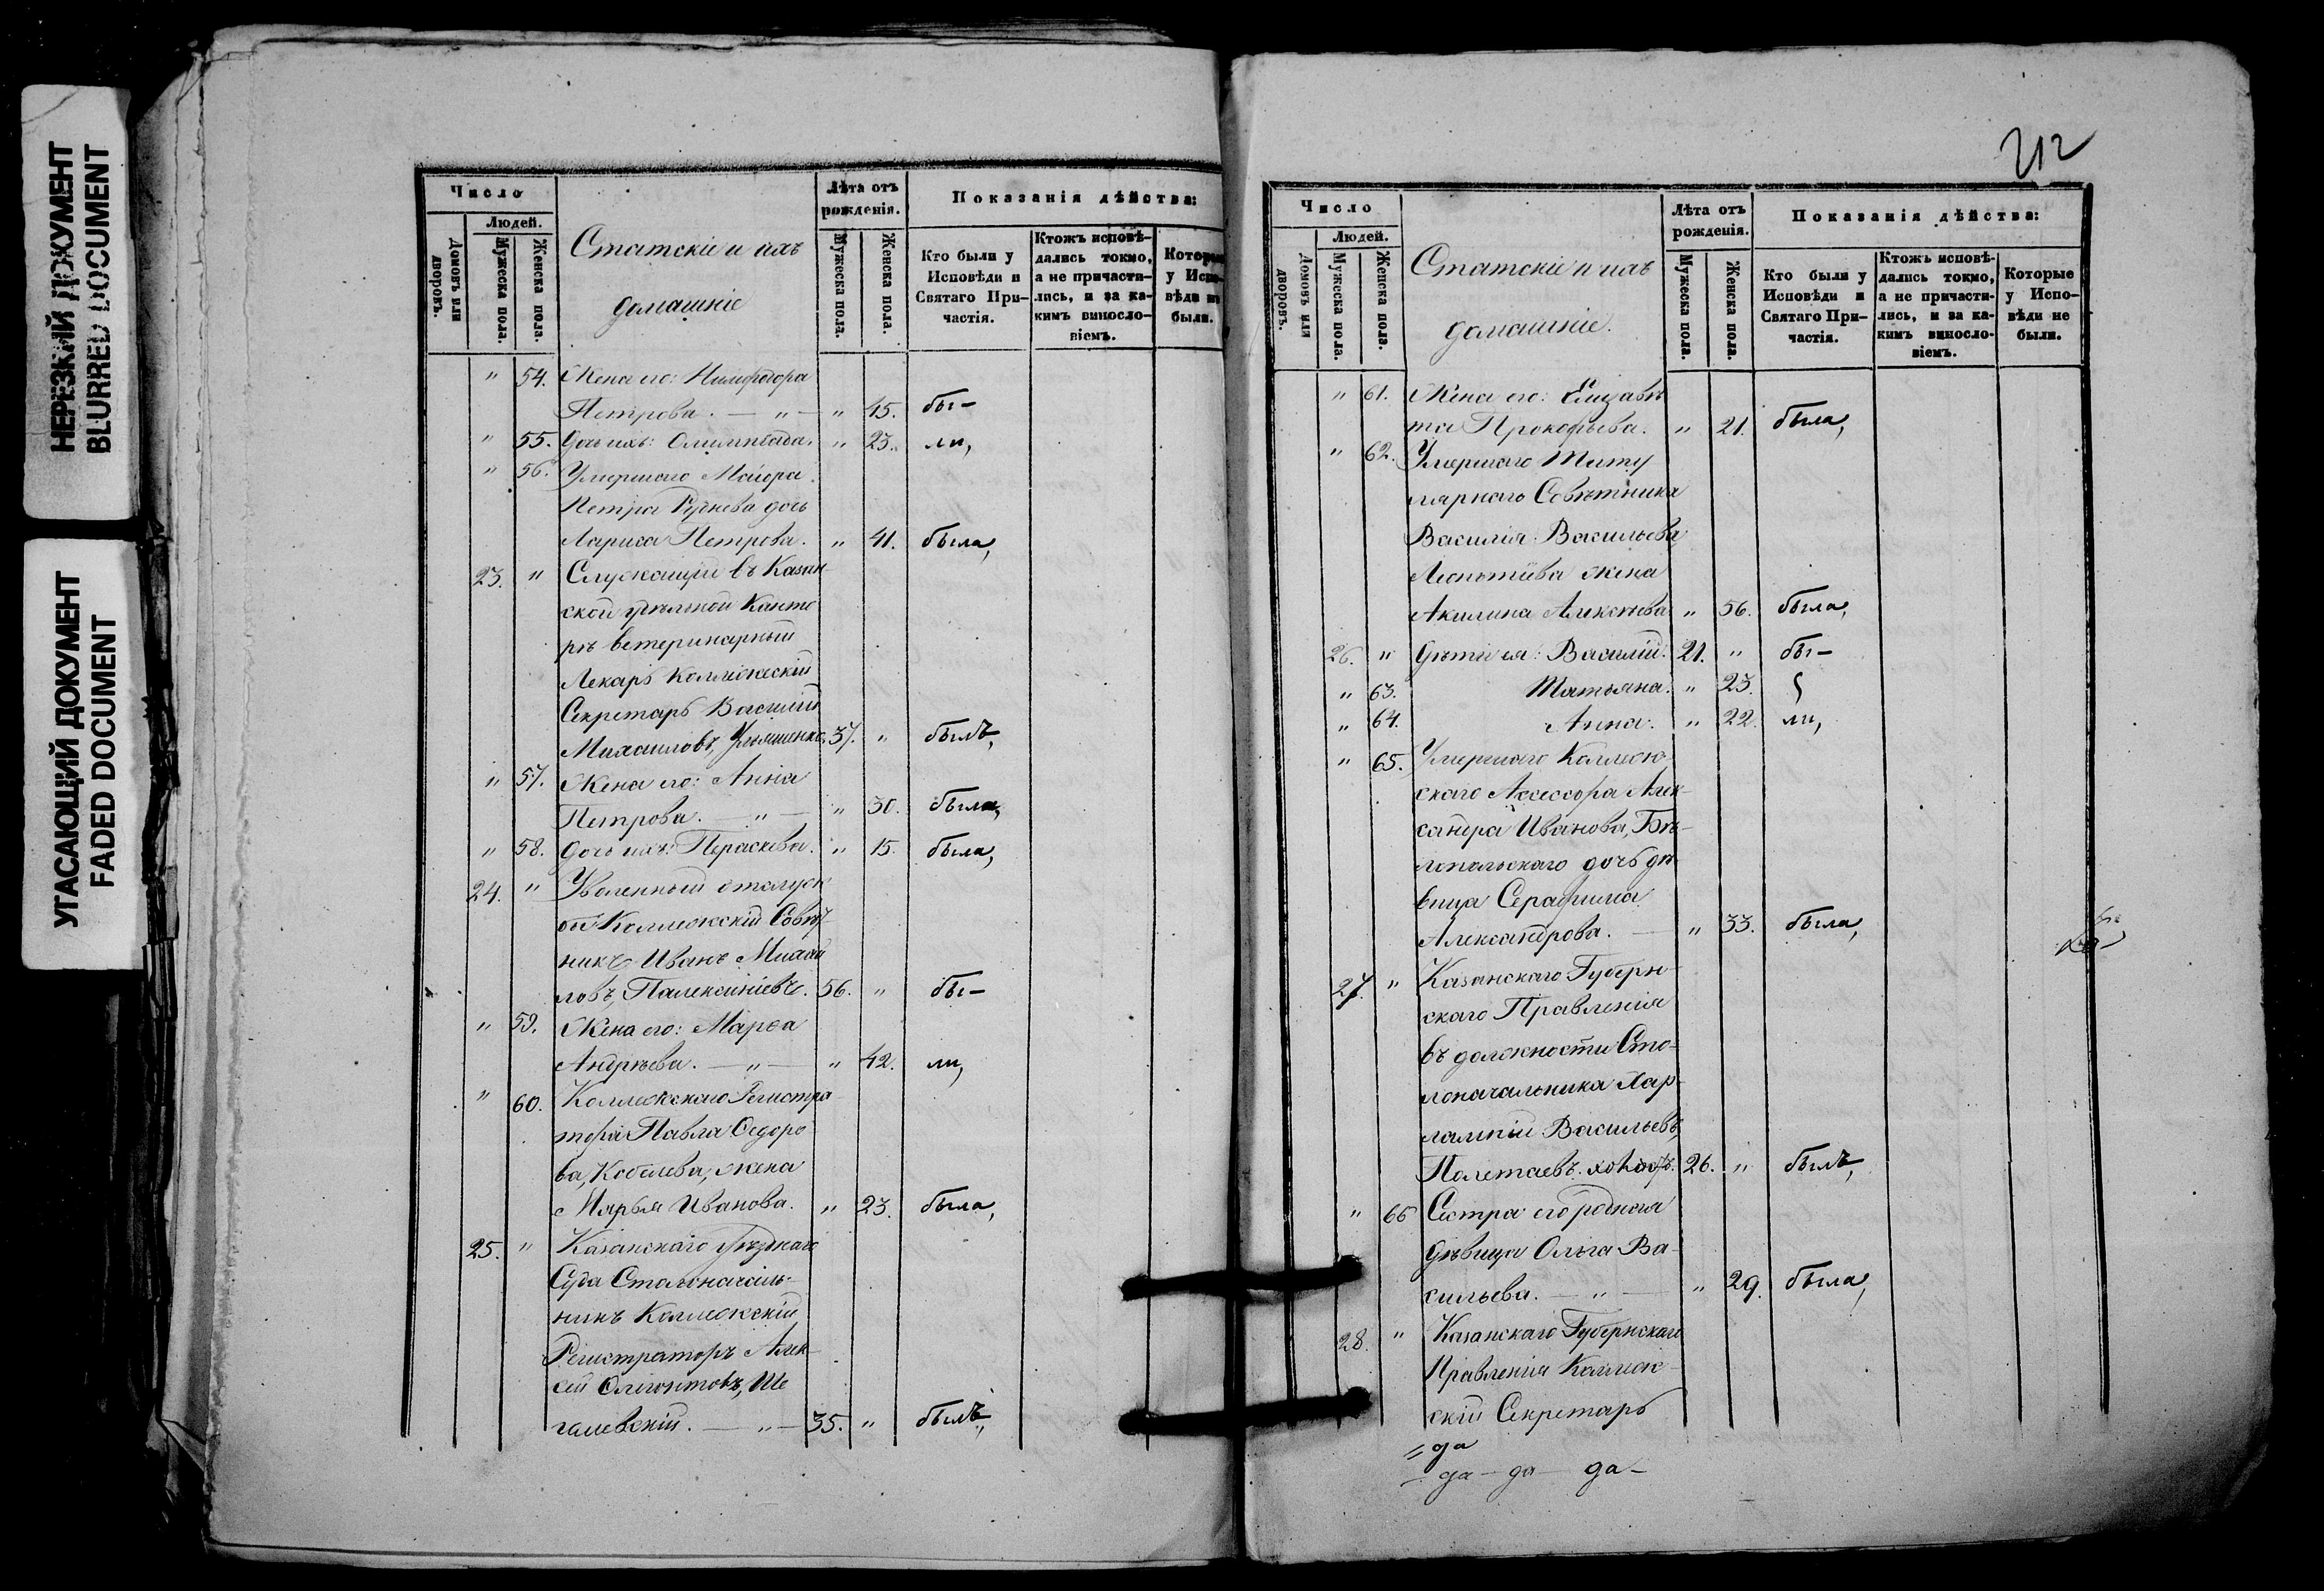 НЕРЕЗКИЙ ДОКУМЕНТ
BLURRED DOCUMENT
УГАСАЮЩИЙ ДОКУМЕНТ
FADED DOCUMENT
Число
Людей.
Домовъ или дворовъ.
Мужеска пола.
Женска пола.
Статскіе и ихъ
домашніе
Лѣта отъ рожденія.
Мужеска пола.
Женска пола.
Показанія дѣйства:
Кто были у Исповѣди и Святаго При-частія.
Ктожъ исповѣ-дались токмо, а не причасти-лись, и за ка-кимъ винослo-віемъ.
Которые у Испо-вѣди не были.
" 54. Жена его: Нимфодора
Петрова. — " — " 45. бы-
" 55. Дочь ихъ: Олимпіада. " 23. ли,
" 56. Умершаго Маіора
Петра Руднева дочь
Лариса Петрова. " 41. была,
23. " Служащій въ Казан
ской Конто
рѣ ветеринарный
Лекарь Коллежскій
Секретарь Василій
Михаиловъ, Ульяшенко. 37. " былъ,
" 57. Жена его: Анна
Петрова. — " — " 30. была,
" 58. Дочь ихъ: Параскева. " 15. была,
24. " Уволенный отслуж
бы Коллежскій Совѣт
никъ Иванъ Михаи
ловъ, 56. " бы-
" 59. Жена его: Марѳа
Андреева. — " — " 42. ли,
" 60. Коллежскаго Регистра
тора Павла Ѳедоро
ва, Кобелева, жена
Марья Иванова. " 23. была,
25. " Казанскаго Уѣзднаго
Суда Столоначаль-
никъ Коллежскій
Регистраторъ Алек-
сей Ше
галевскій. — " — 35. " былъ,
212
Число
Людей.
Домовъ или дворовъ.
Мужеска пола.
Женска пола.
Статскіе и ихъ
домашніе.
Лѣта отъ рожденія.
Мужеска пола.
Женска пола.
Показанія дѣйства:
Кто были у Исповѣди и Святаго При-частія.
Ктожъ исповѣ-дались токмо, а не причасти-лись, и за ка-кимъ винослo-віемъ.
Которые у Испо-вѣди не были.
" 61. Жена его: Елизаве
та Прокофьева. " 21. была,
" 62. Умершаго Титу
лярнаго Совѣтника
Василія Васильева
Леонтіева жена
Акилина Алексѣева " 56. была,
26. " Дѣти ея: Василій. 21. " бы-
" 63. Татьяна. " 23.
" 64. Анна. " 22. ли,
" 65. Умершаго Коллеж-
скаго Ассессора Алек-
сандра Иванова, Бѣ-
лопольскаго дочь дѣ-
вица Серафима
Александрова. — " 33. была,
27. " Казанскаго Губерн-
скаго Правленія
въ должности Сто-
лоначальника Хар-
лампій Васильевъ,
Полетаевъ. холост. 26. " былъ,
" 66 Сестра его родная
дѣвица Ольга Ва-
сильева. — " — " 29. была,
28. " Казанскаго Губернскаго
Правленія Коллеж-
скій Секретарь
да
да — да — да —